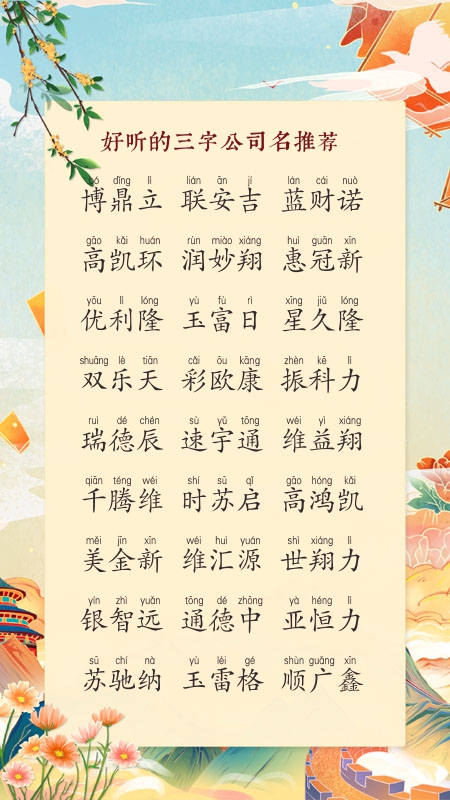 好听的三字公司名推荐
bó dǐng lì lián ān jí lán cái nuò
博鼎立 联安吉 蓝财诺
gāo kǎi huán rùn miào xiáng huì guān xīn
高凯环 润妙翔 惠冠新
yōu lì lóng yù fù rì xīng jiǔ lóng
优利隆 玉富日 星久隆
shuāng lè tiān cǎi ōu kāng zhèn kē lì
双乐天 彩欧康 振科力
ruì dé chén sù yǔ tōng wéi yì xiáng
瑞德辰 速宇通 维益翔
qiān téng wéi shí sū qǐ gāo hóng kǎi
千腾维 时苏启 高鸿凯
měi jīn xīn wéi huì yuán shì xiáng lì
美金新 维汇源 世翔力
yín zhì yuǎn tōng dé zhōng yà héng lì
银智远 通德中 亚恒力
sū chí nà yù léi gé shùn guǎng xīn
苏驰纳 玉雷格 顺广鑫